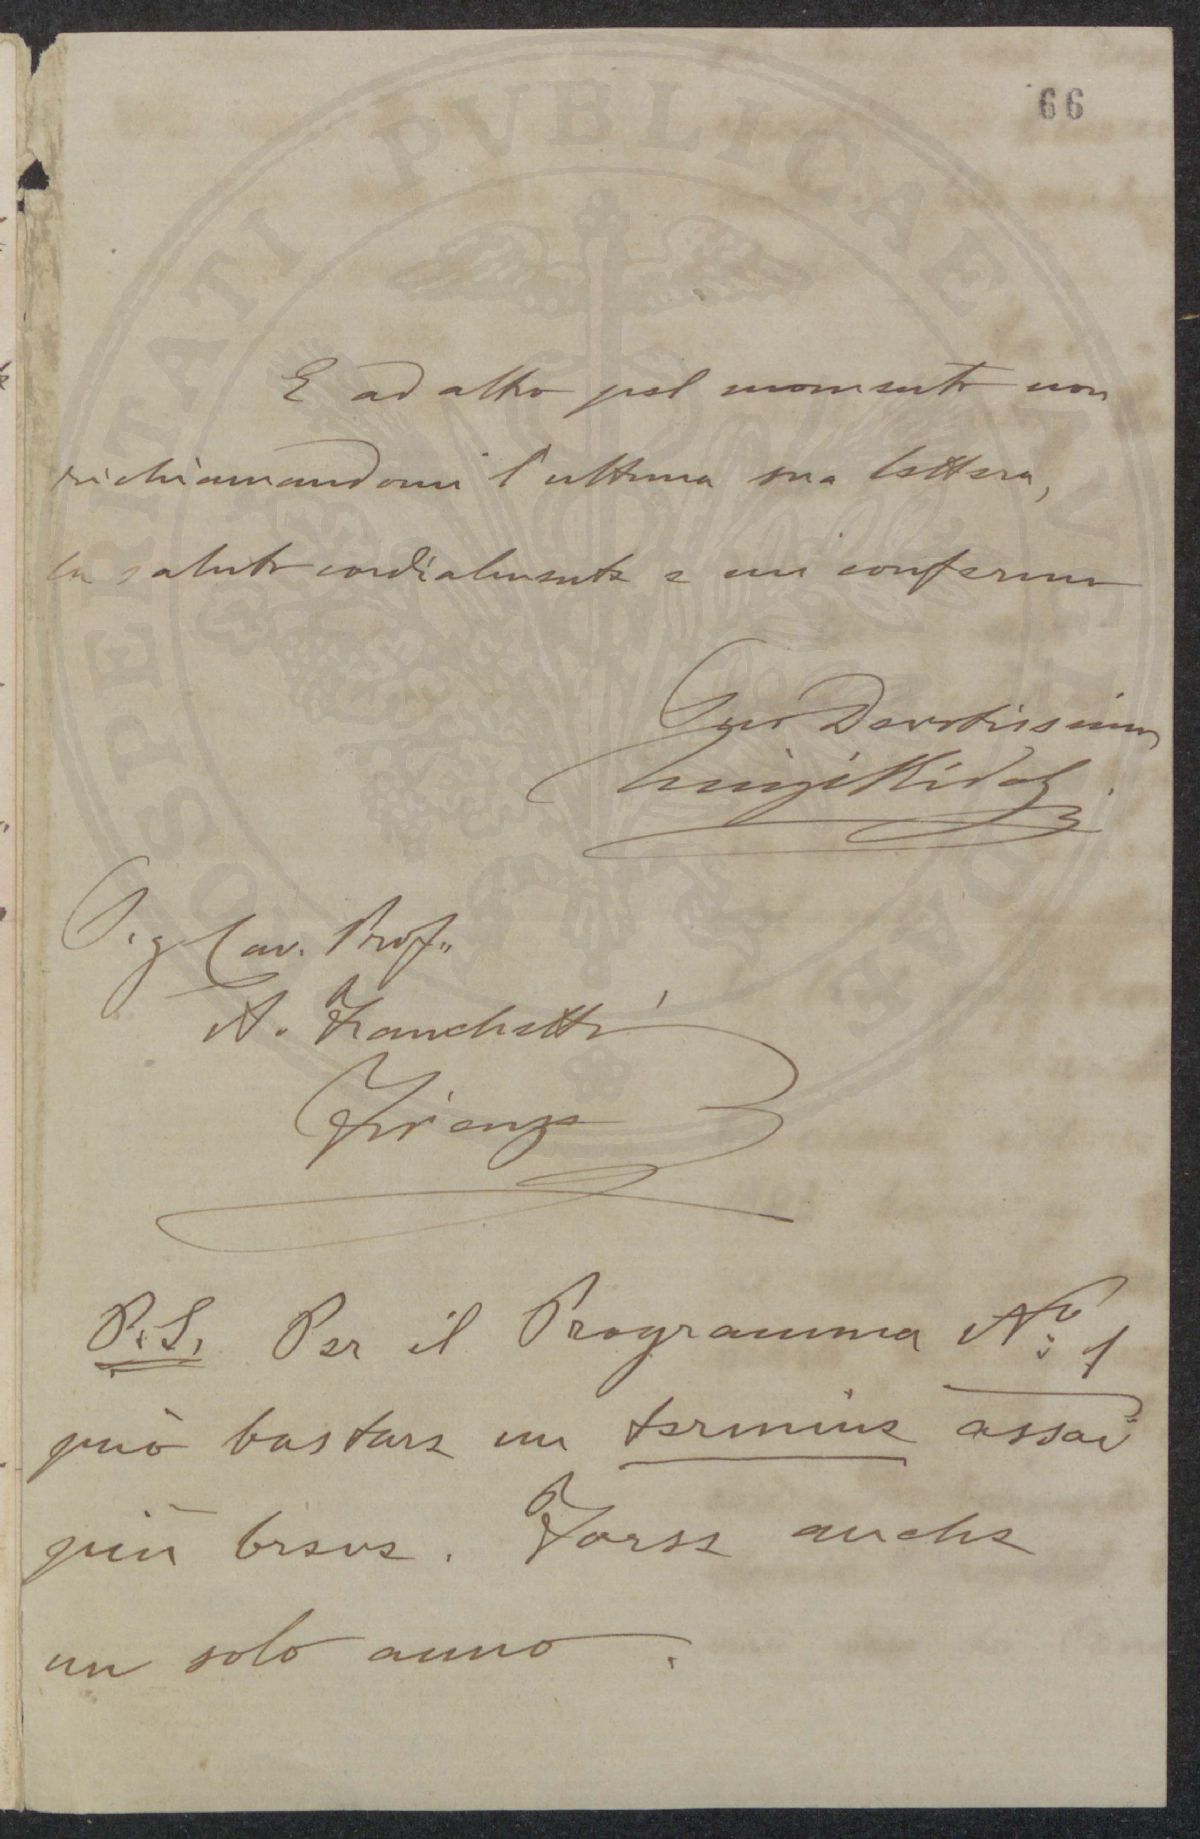 66
E ad altro pel momento non
richiamandomi l'ultima sua lettera,
la saluto cordialmente e mi confermo
Suo Devotissimo
Luigi
Sig Cav. Prof.
A. Franchetti
Firenze
P.S. Per il Programma No: 1
può bastare un termine assai
più breve. Forse anche
un solo anno.
PROSPERITATI PVBLICAE AVGENDAE